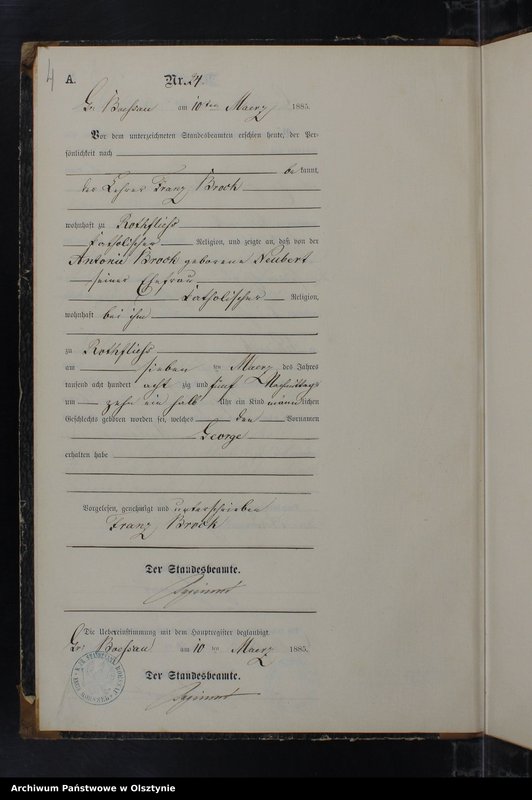 4
A.
Nr. 24.
Gr. Boessau am 10 ten Maerz 1885.
Vor dem unterzeichneten Standesbeamten erschien heute, der Per-
sönlichkeit nach
be kannt,
der Lehrer Franz Brock
wohnhaft zu Rothfliess
katholischer Religion, und zeigte an, daß von der
Antonie Brock geborene Neubert
seiner Ehefrau
katholischer Religion,
wohnhaft bei ihm
zu Rothfliess
am sieben ten Maerz des Jahres
tausend acht hundert acht zig und fünf Nachmittags
um zehn ein halb Uhr ein Kind männlichen
Geschlechts geboren worden sei, welches den Vornamen
George
erhalten habe
Vorgelesen, genehmigt und unterschrieben
Franz Brock
Der Standesbeamte.
Die Uebereinstimmung mit dem Hauptregister beglaubigt.
Gr. Boessau am 10 ten Maerz 1885.
Der Standesbeamte.
Archiwum Państwowe w Olsztynie